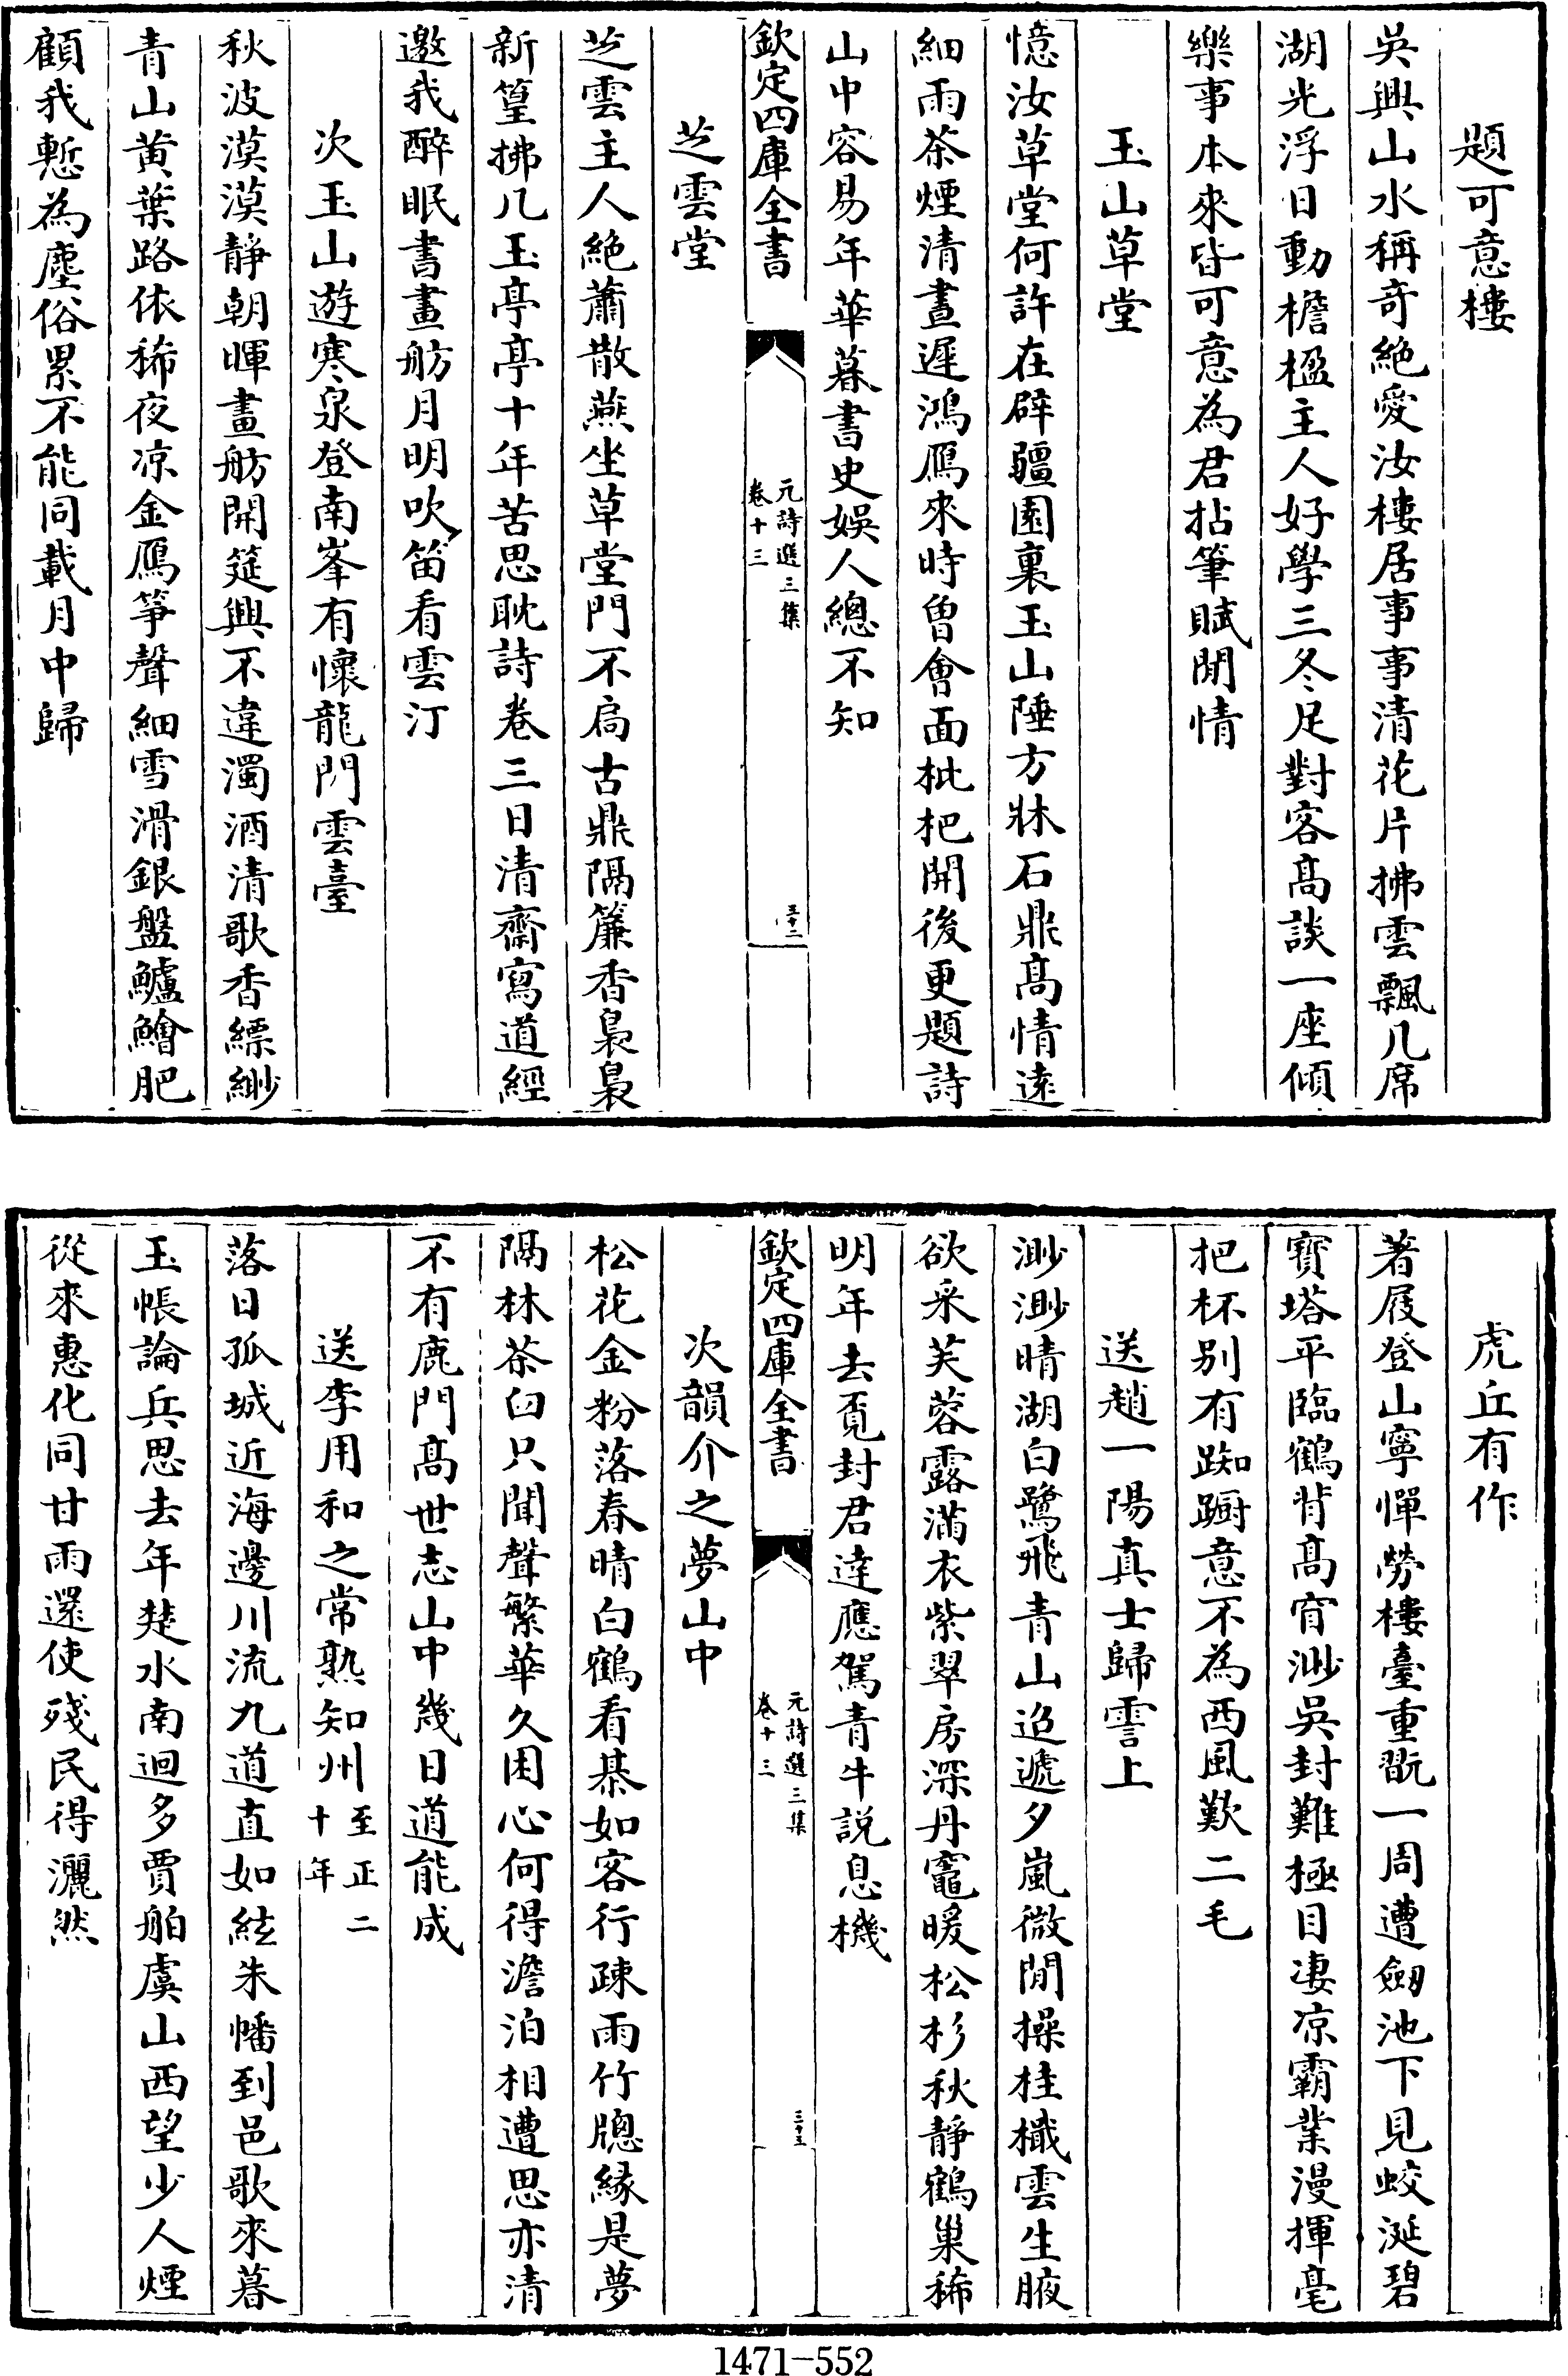 題可意樓
吳興山水稱奇絶愛汝樓居事事清花片拂雲飄几席
湖光浮日動檐楹主人好學三冬足對客髙談一座傾
樂事本來皆可意為君拈筆賦閒情
玉山草堂
憶汝草堂何許在辟疆園裏玉山陲方牀石鼎髙情逺
細雨茶煙清晝遲鴻鴈來時曽會面枇杷開後更題詩
山中容易年華暮書史娛人總不知
欽定四庫全書
元詩選三集
卷十三
三十二
芝雲堂
芝雲主人絶蕭散燕坐草堂門不扃古鼎隔簾香裊裊
新篁拂几玉亭亭十年苦思耽詩卷三日清齋寫道經
邀我醉眠書畫舫月明吹笛看雲汀
次玉山遊寒泉登南峯有懷龍門雲臺
秋波漠漠靜朝暉畫舫開筵興不違濁酒清歌香縹緲
青山黄葉路依稀夜凉金鴈箏聲細雪滑銀盤鱸鱠肥
顧我慙為塵俗累不能同載月中歸
虎丘有作
著屐登山寧憚勞樓臺重翫一周遭劒池下見蛟涎碧
寳塔平臨鶴背髙窅渺吳封難極目凄凉霸業漫揮毫
把杯别有踟蹰意不為西風歎二毛
送趙一陽真士歸霅上
渺渺晴湖白鷺飛青山迢遞夕嵐微閒操桂檝雲生腋
欲采芙蓉露滿衣紫翠房深丹竈暖松杉秋靜鶴巢稀
明年去覓封君達應駕青牛説息機
欽定四庫全書
元詩選三集
卷十三
三十三
次韻介之夢山中
松花金粉落春晴白鶴看棊如客行疎雨竹牎緣是夢
隔林茶臼只聞聲繁華久困心何得澹泊相遭思亦清
不有鹿門髙世志山中幾日道能成
送李用和之常熟知州至正二十年
落日孤城近海邊川流九道直如絃朱幡到邑歌來暮
玉帳論兵思去年楚水南迴多賈舶虞山西望少人煙
從來惠化同甘雨還使殘民得灑然
1471-552